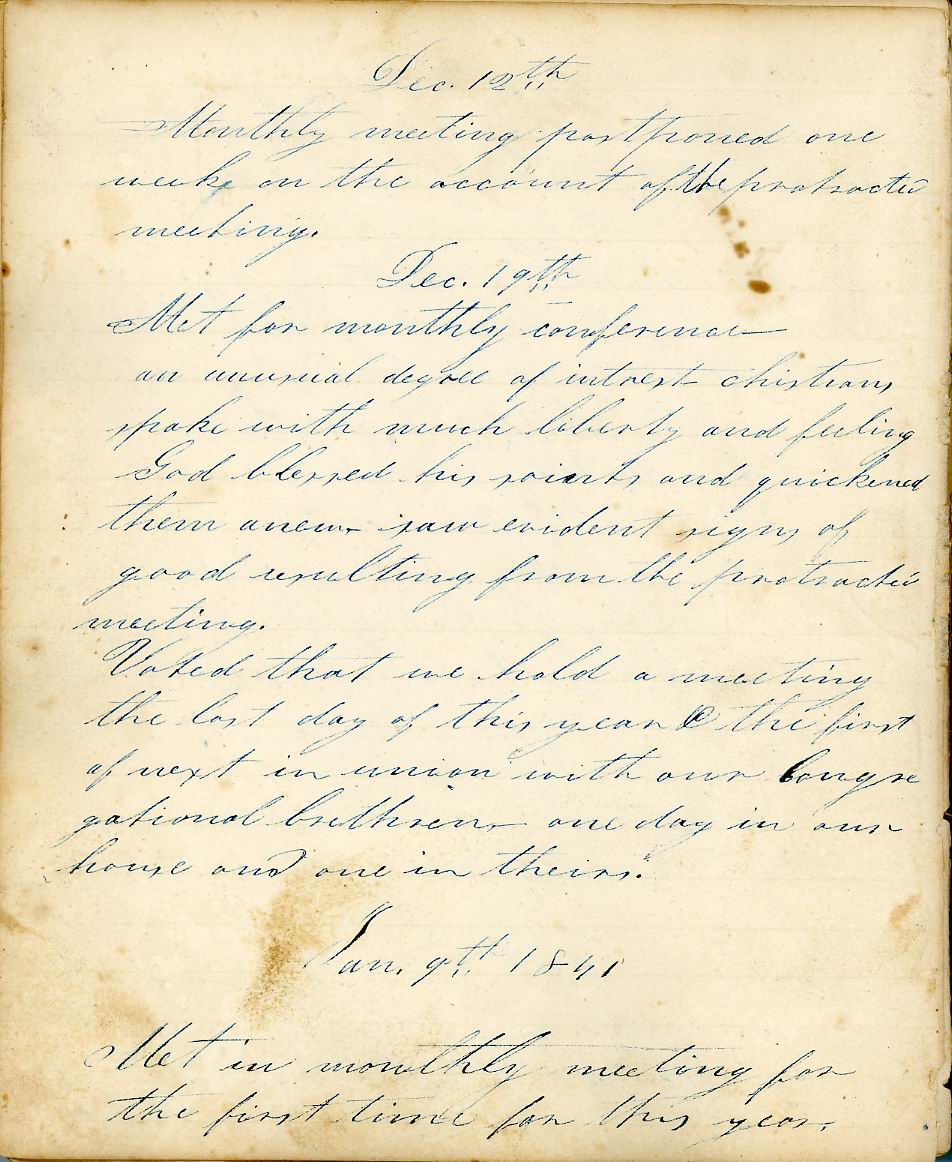 Dec. 12th
Monthly meeting postponed one
week on the account of the protracted
meeting.
Dec. 19th
Met for monthly conference
an unusual degree of intrest chistians
spake with much liberty and feeling
God blessed his saints and quickened
them anew - saw evident signs of
good resulting from the protracted
meeting.
Voted that we hold a meeting
the last day of this year & the first
of next in union with our Congre
gational brethren - one day in our
house and one in theirs.
Jan. 9th 1841
Met in monthly meeting for
the first time for this year.